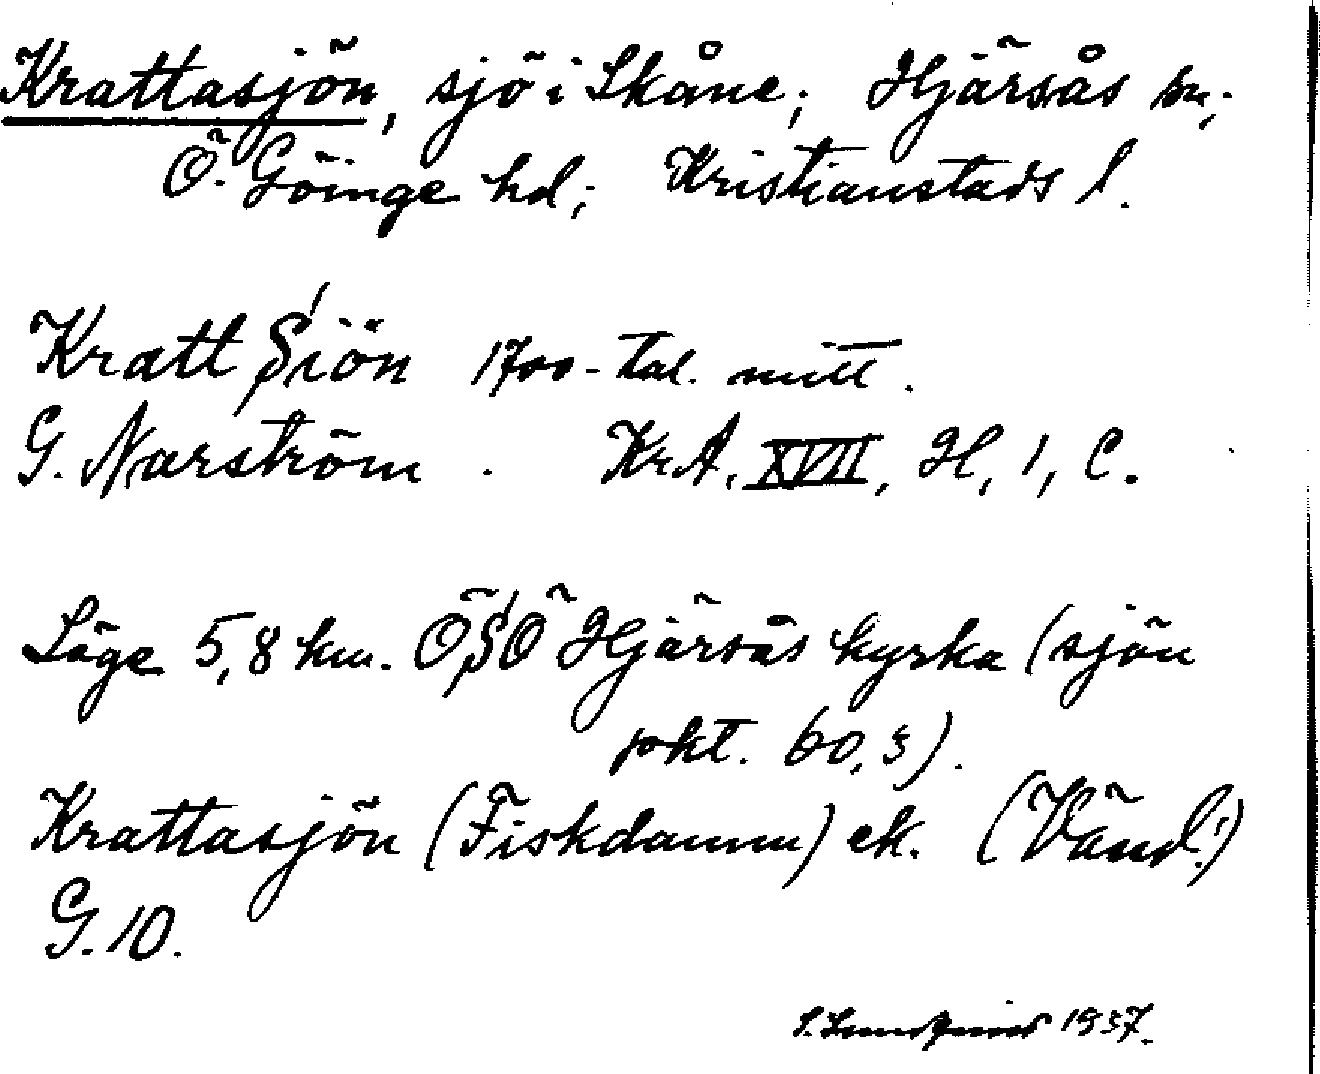 Krattasjön, sjö i Skåne; Hjärsås sn;
Ö. Göinge hd; Kristianstads l.
Kratt Siön 1700-tal. mitt.
G. Narström. Kr.A. XVII, H, 1, C.
Läge 5,8 km. ÖSÖ Hjärsås kyrka (sjön
pkt. 60,3).
Krattasjön (Fiskdamm) ek. (Vänd!)
G. 10.
S. Lundqvist 1937.